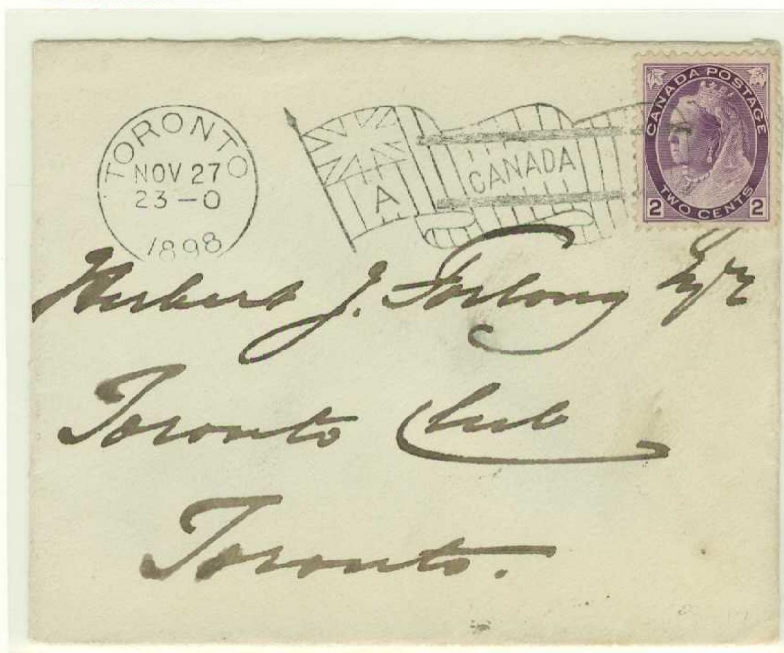 TORONTO
NOV 27
23-0
1898
A
CANADA
CANADA POSTAGE
2 TWO CENTS 2
Herbert J. Furlong Esqr
Toronto Club
Toronto.